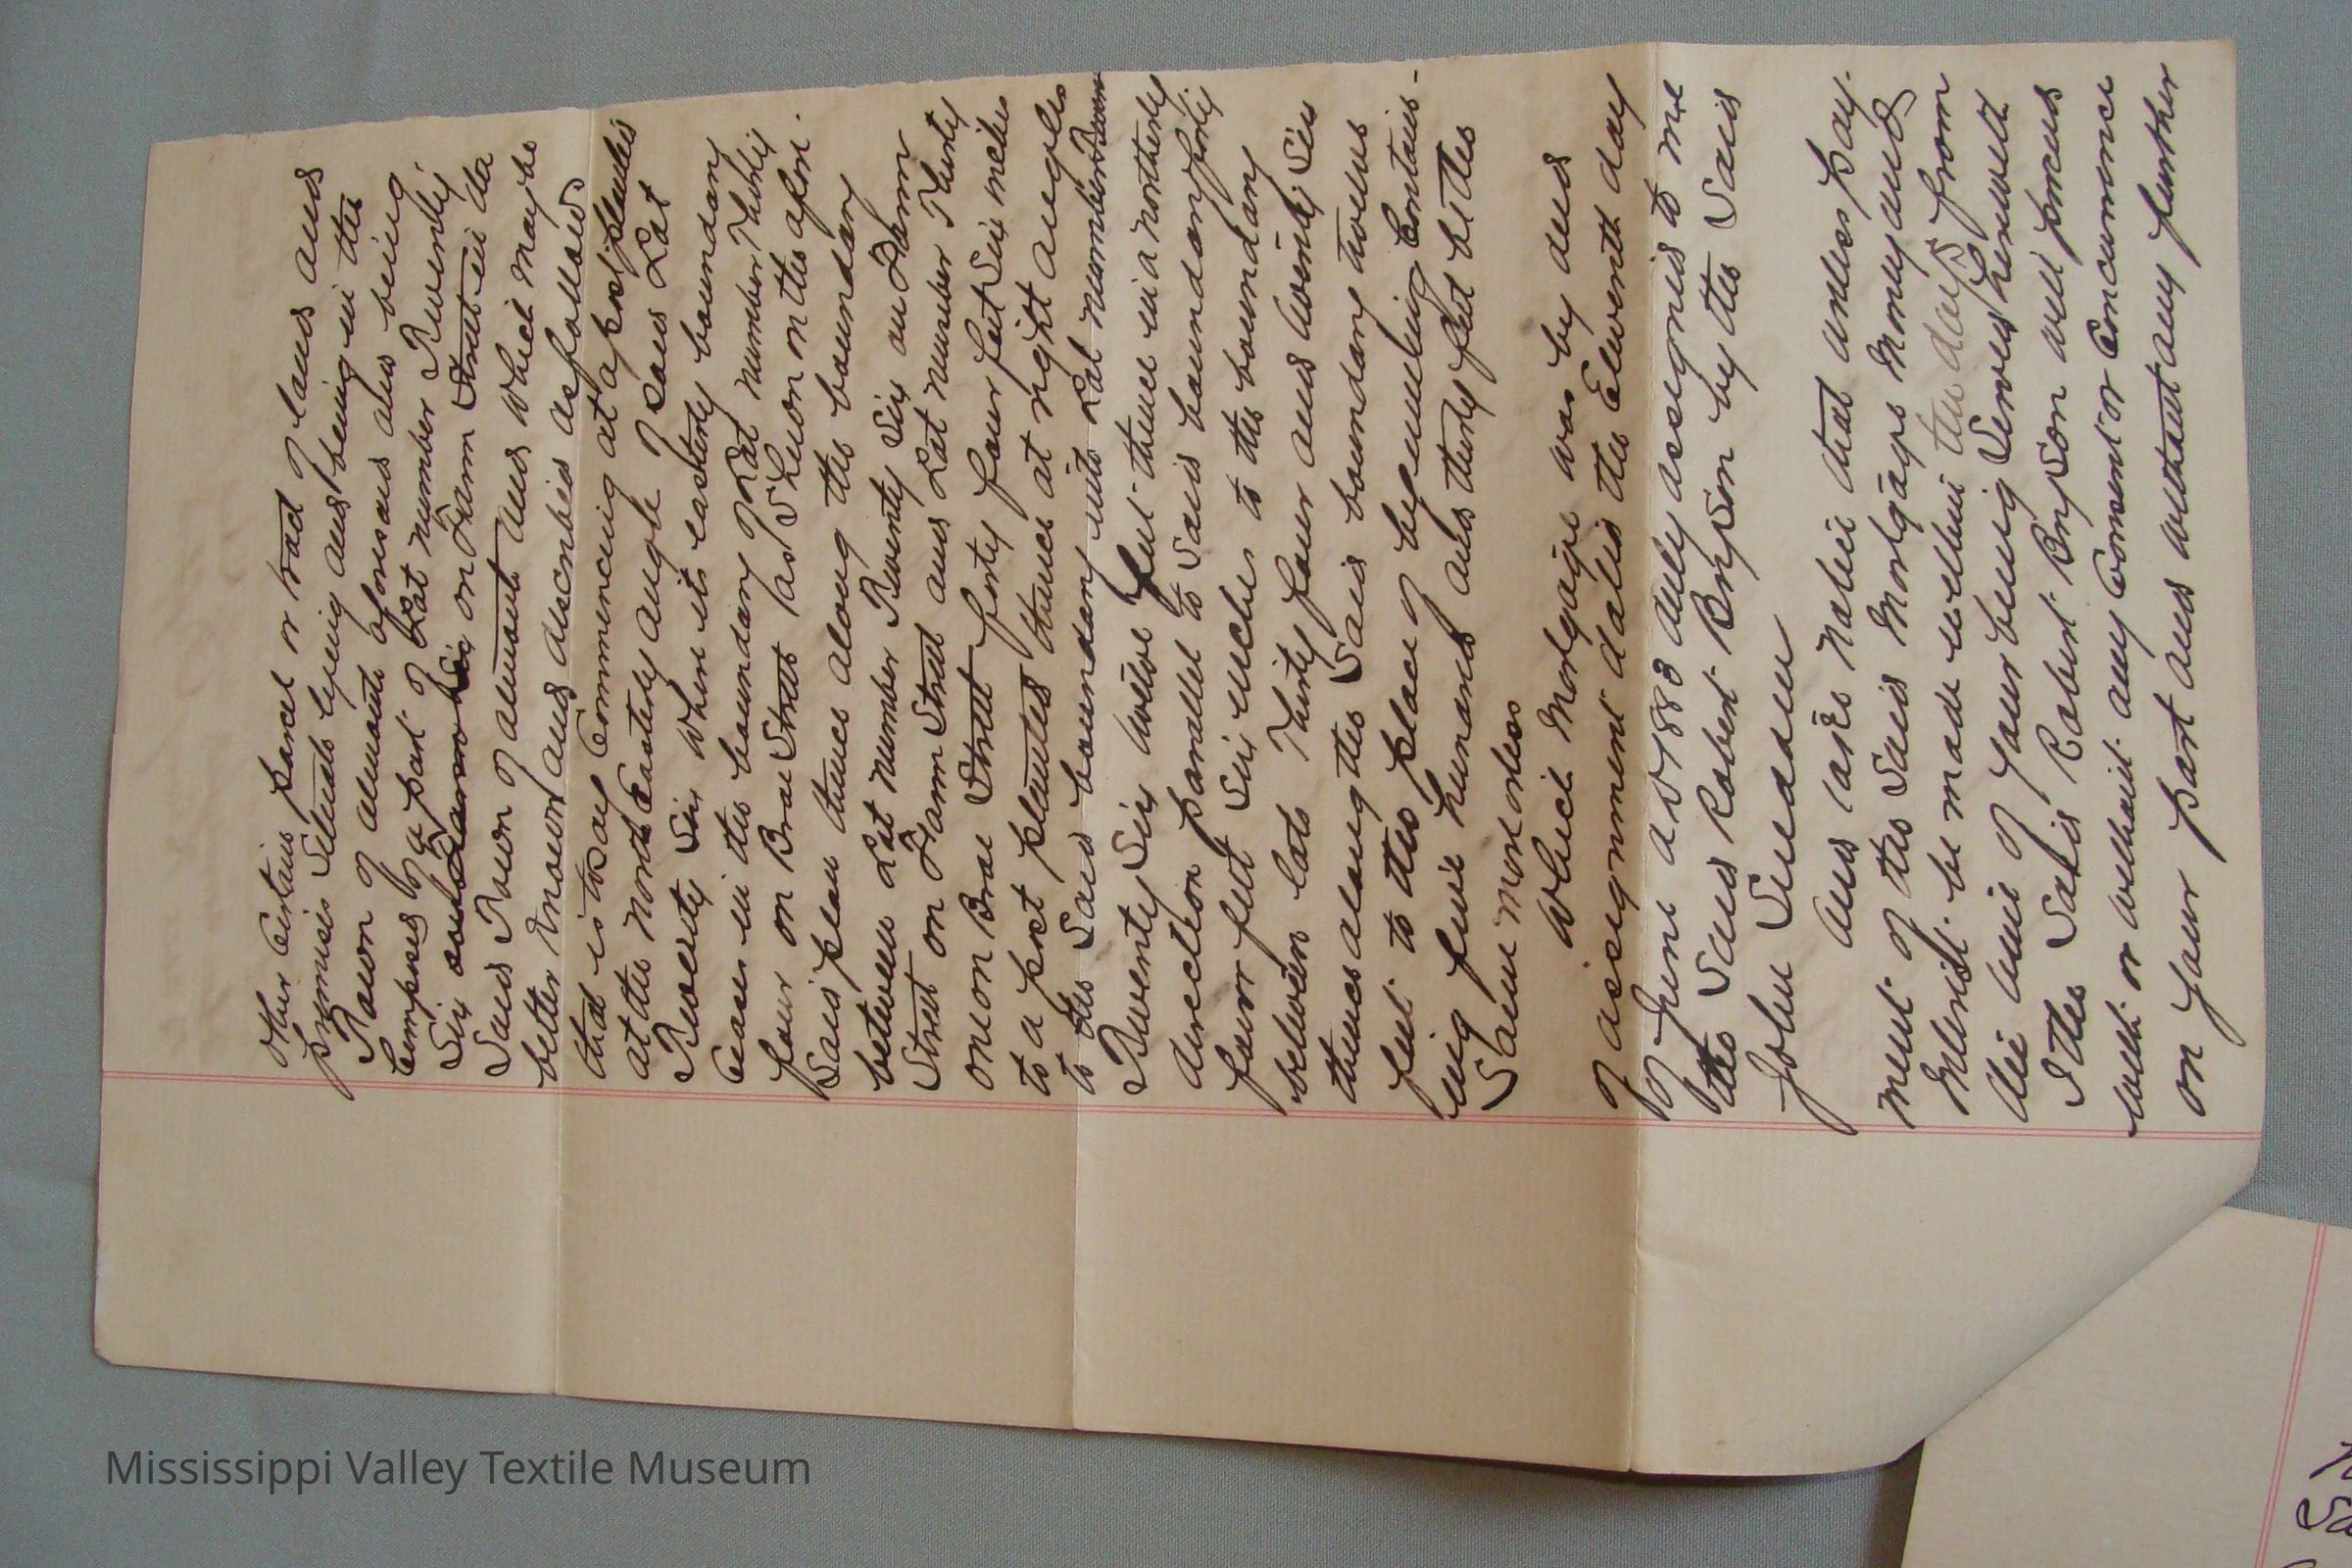 other certain parcel or tract of land and
premises situate lying and being in the
Town of Almonte aforesaid and being
composed of a part of Lot number Twenty
Six on Farm Street in the
said Town of Almonte and which may be
better known and described as follows
that is to say Commencing at a post planted
at the North Easterly angle of said Lot
Twenty Six where its easterly boundary
ceases in the boundary of Lot number Thirty
four on Brae Street as shewn on the afore-
said plan thence along the boundary
between Lot number Twenty Six on Farm
Street on Farm Street and Lot number Thirty
one on Brae Street forty four feet Six inches
to a post planted thence at right angles
to the said boundary into Lot number
Twenty Six twelve feet thence in a northerly
direction parallel to said boundary forty
four feet Six inches to the boundary
between lots Thirty four and twenty Six
thence along the said boundary twelve
feet to the place of beginning Contain-
ing five hundred and thirty feet be the
Same more or less
Which Mortgage was by deed
of assignment dated the Eleventh day
of June A D 1888 duly assigned to me
the said Robert Bryson by the said
John Sneddon
And take notice that unless pay-
ment of the said Mortgage Money and
Interest be made within ten days from
the time of your being Served herewith
I the Said Robert Bryson will proceed
with or without any Consent or Concurrence
on your part and without any further
Mississippi Valley Textile Museum